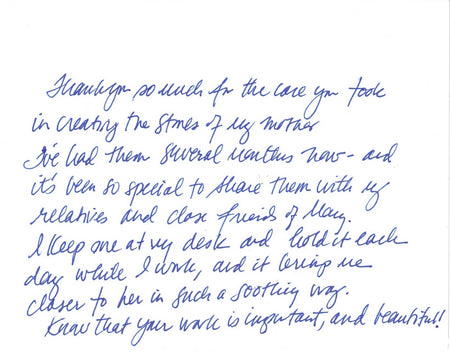 Thank you so much for the care you took
in creating the stones of my mother
I've had them several months now - and
it's been so special to share them with my
relatives and close friends of Mary.
I keep one at my desk and hold it each
day while I work, and it brings me
closer to her in such a soothing way.
Know that your work is important, and beautiful!